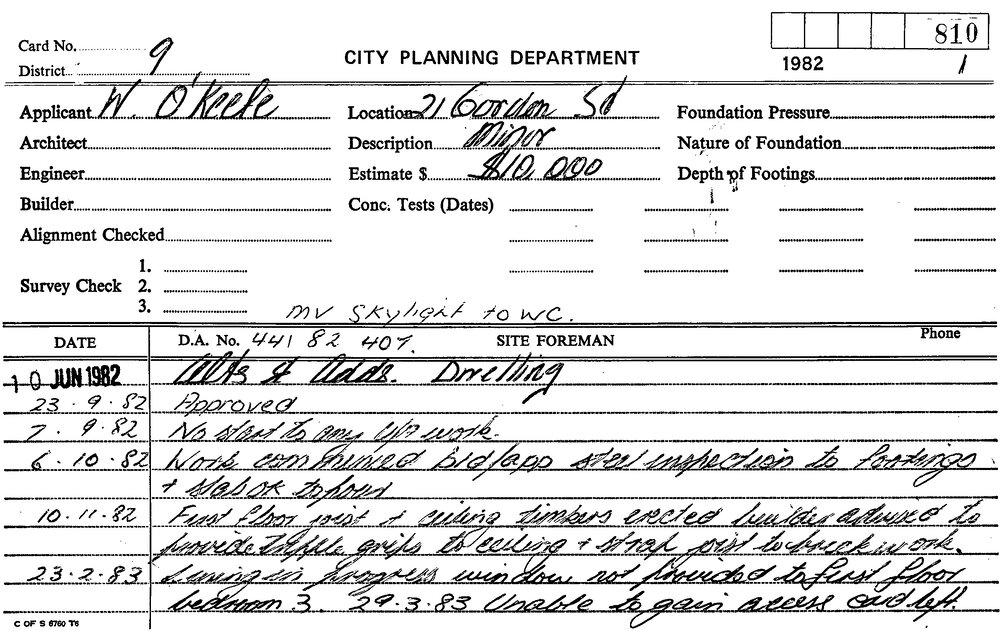 810
Card No. 9
District
CITY PLANNING DEPARTMENT
1982 1
Applicant W. O'Keefe Location 21 Gordon St Foundation Pressure
Architect Description Minor Nature of Foundation
Engineer Estimate $ $10,000 Depth of Footings
Builder Conc. Tests (Dates)
Alignment Checked
1.
Survey Check 2.
3.
MV Skylight to WC.
DATE D.A. No. 441 82 407. SITE FOREMAN Phone
10 JUN 1982 Alts & Adds. Dwelling
23.9.82 Approved
7.9.82 No start to any work.
6.10.82 Work commenced steel inspection to footings
+ slab OK to pour
10.11.82 First floor joist + ceiling timbers erected builder advised to
provide triple grips to ceiling + strap joist to brick work.
23.2.83 Lining in progress window not provided to first floor
bedroom 3. 29.3.83 Unable to gain access card left.
C OF S 6760 T6